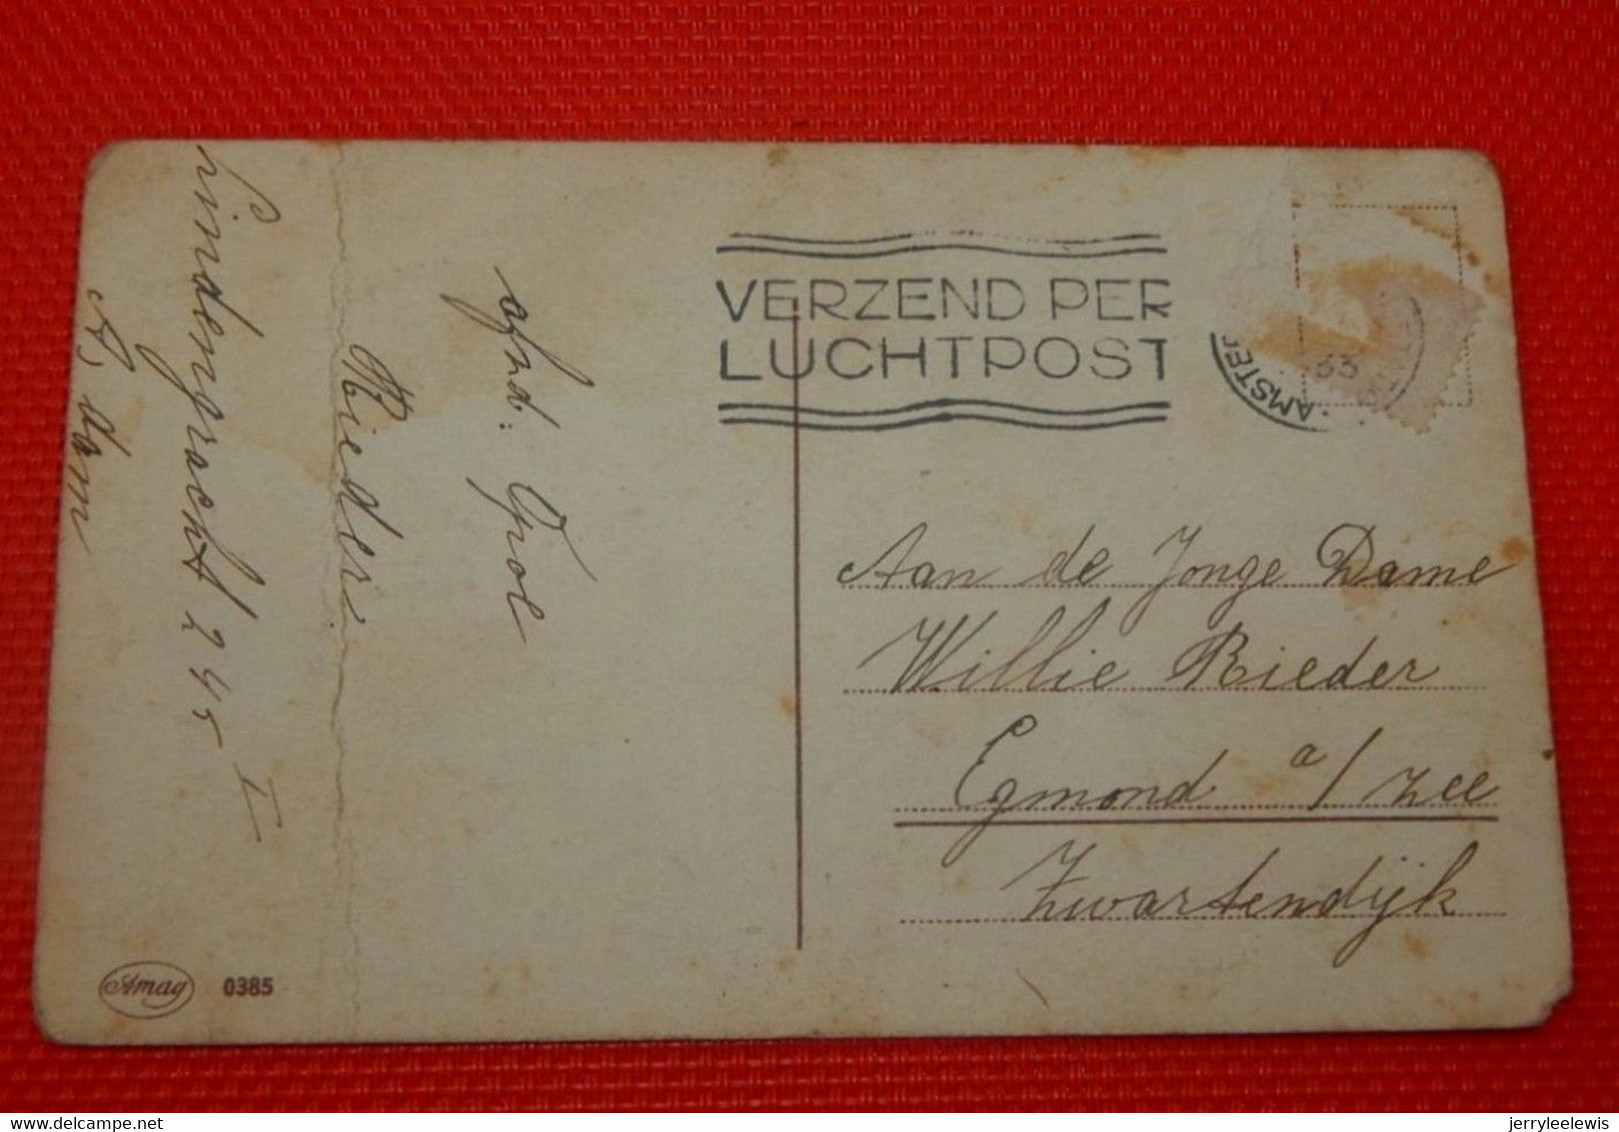 afzd:
Lindengracht 245 I
A,dam
VERZEND PER
LUCHTPOST
AMSTER
33
Aan de Jonge Dame
Willie Rieder
Egmond a/zee
Zwartendijk
Amag 0385
delcampe.net
jerryleelewis